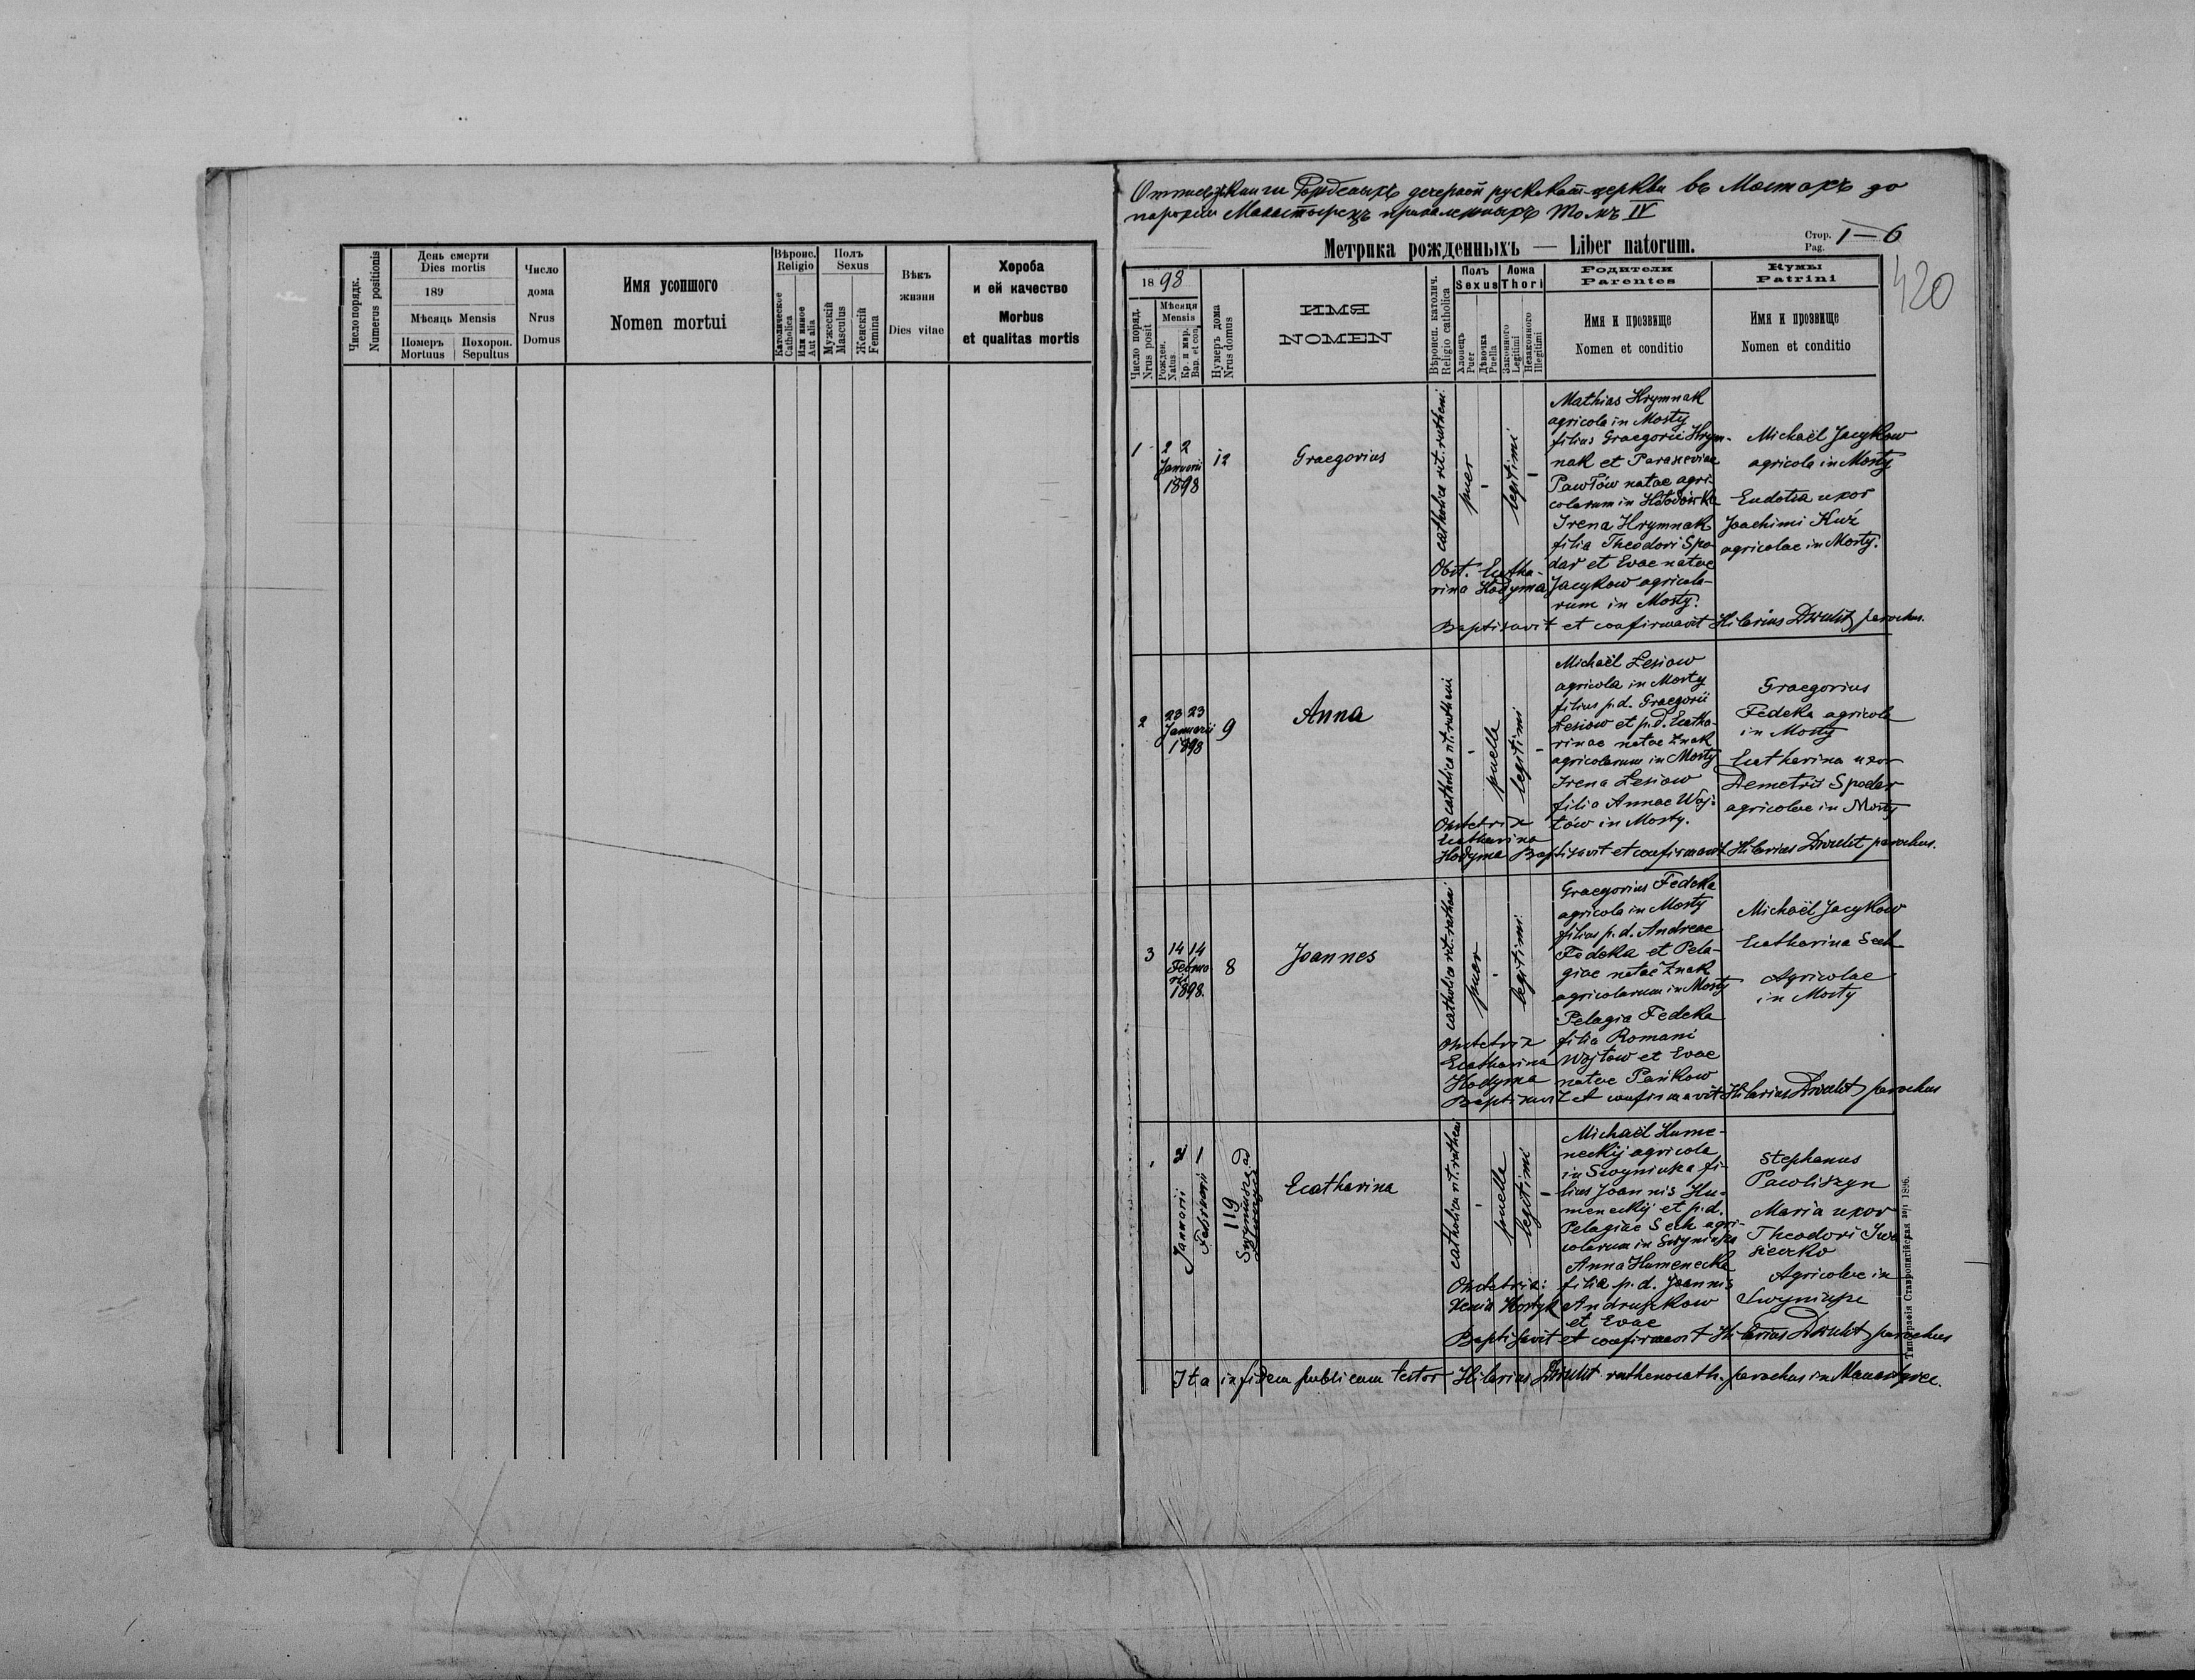 Число порядк.
Numerus positionis
День смерти
Dies mortis
189
Мѣсяць Mensis
Померъ
Mortuus
Похорон.
Sepultus
Число
дома
Nrus
Domus
Имя усопшого
Nomen mortui
Вѣроис.
Religio
Католическое
Catholica
Или инное
Aut alia
Полъ
Sexus
Мужескій
Masculus
Женскій
Femina
Вѣкъ
жизни
Dies vitae
Хороба
и ей качество
Morbus
et qualitas mortis
церкви въ Мостахъ до
парохіи Томъ IV
Метрика рожденныхъ — Liber natorum.
Стор.
Pag.
1—6
420
1898
Число поряд.
Nrus posit
Мѣсяця
Mensis
Рожден.
Natus
Кр. и мир.
Bap. et con.
Нумеръ дома
Nrus domus
ИМЯ
NOMEN
Вѣроисп. католич.
Religio catholica
Полъ
Sexus
Хлопець
Puer
Дѣвочка
Puella
Ложа
Thori
Законного
Legitimi
Незаконного
Illegitimi
Родители
Parentes
Имя и прозвище
Nomen et conditio
Кумы
Patrini
Имя и прозвище
Nomen et conditio
1
2 2
Januarii
1898
12
Graegorius
catholica rit. rutheni
puer
-
legitimi
-
Mathias Hrymnak
agricola in Mosty
filius Graegorii Hrym-
nak et Parasceviae
Pawłów natae agri-
colarum in Hołodówka
Irena Hrymnak
filia Theodori Spo-
dar et Evae natae
Jacykow agricola-
rum in Mosty.
Michaël Jacykow
agricola in Mosty
Eudotia uxor
Joachimi Kuź
agricolae in Mosty.
Obst. Ecatha-
rina Hodyma
Baptisavit et confirmavit Hilarius Dzulit parochus.
2
23 23
Januarii
1898
9
Anna
catholica rit. rutheni
-
puella
legitimi
-
Michaël Lesiow
agricola in Mosty
filius p.d. Graegorii
Lesiow et p.d. Ecatha-
rinae natae Znak
agricolarum in Mosty
Irena Lesiow
filia Annae Woj-
tów in Mosty.
Graegorius
Fedeka agricola
in Mosty
Ecatherina uxor
Demetrii Spodar
agricolae in Mosty
Obstetrix
Ecatharina
Hodyma Baptisavit et confirmavit Hilarius Dzulit parochus.
3
14 14
Februa-
rii
1898.
8
Joannes
catholica rit. rutheni
puer
-
legitimi
Graegorius Fedeka
agricola in Mosty
filius p.d. Andreae
Fedeka et Pela-
giae natae Znak
agricolarum in Mosty
Pelagia Fedeka
filia Romani
Wojtow et Evae
natae Pańkow
Michaël Jacykow
Ecatharina Sech
Agricolae
in Mosty
Obstetrix
Ecatharina
Hodyma
Baptisavit et confirmavit Hilarius Dzulit parochus
31 1
Januarii
Februarii
119
Ecatharina
catholica rit. rutheni
-
puella
legitimi
-
Michaël Hume-
neckij agricola
in Swyniusza fi-
lius Joannis Hu-
meneckij et p.d.
Pelagiae Sech agri-
colarum in Swyniusza
Anna Humenecka
filia p.d. Joannis
Andruszkow
et Evae
Stephanus
Pawliszyn
Maria uxor
Theodori Iwa
sieczko
Agricolae in
Obstetrix:
Xenia Kostyk
Baptisavit et confirmavit Hilarius Dzulit parochus
Ita in fidem publicam testor Hilarius Dzulit ruthenocath. parochus in Manastyrec.
Типографія Ставропигійская 1896.